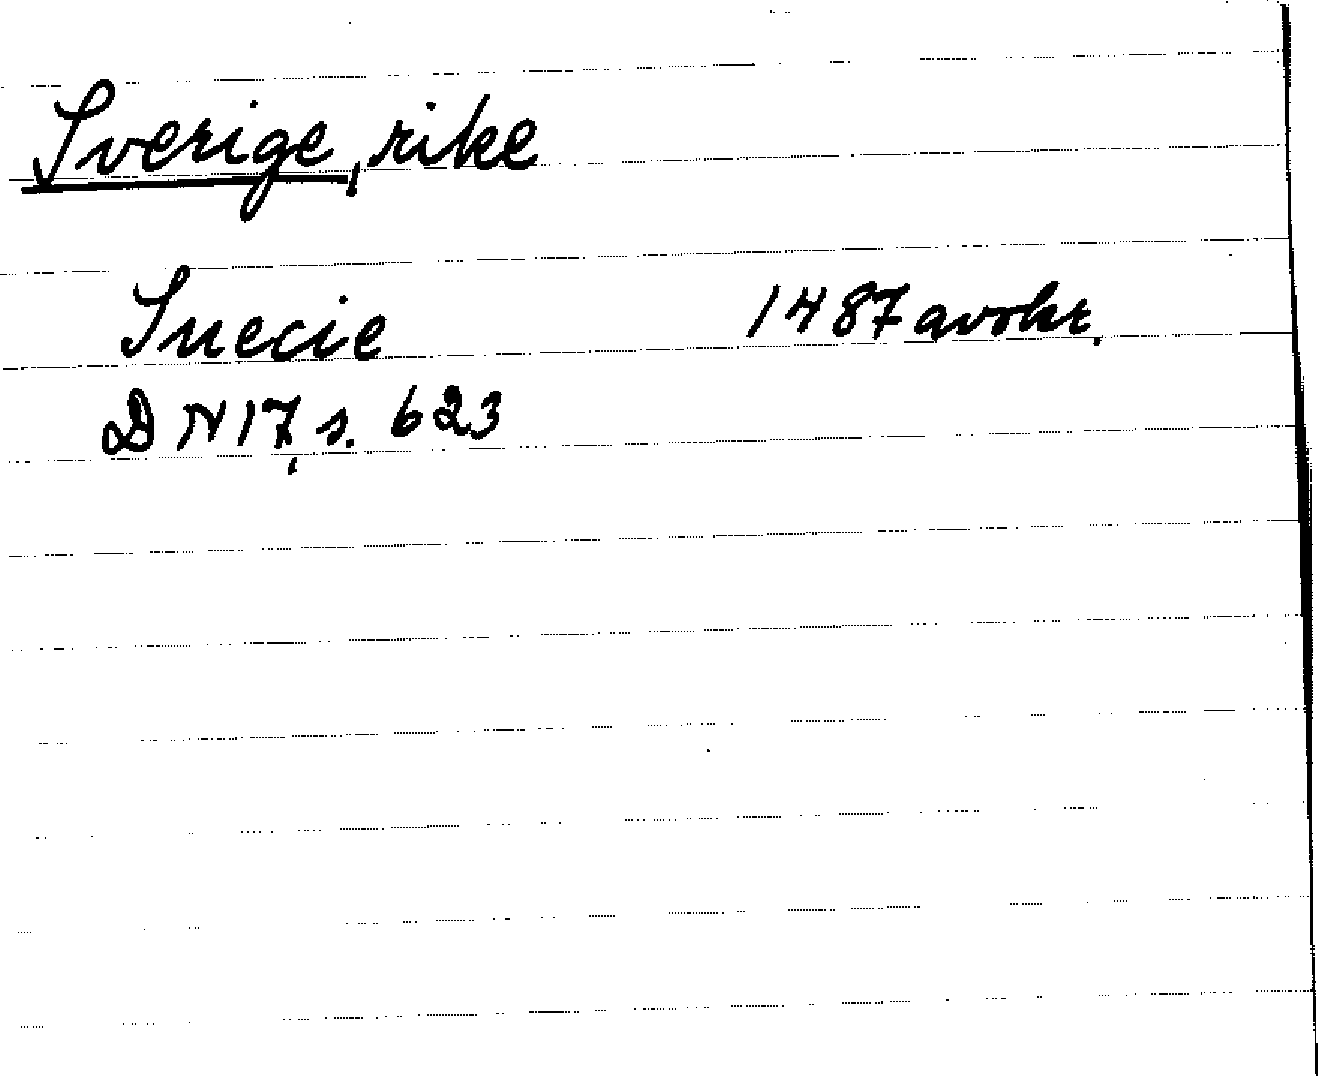 Sverige, rike
Suecie 1487 avskr.
DN 17, s. 623